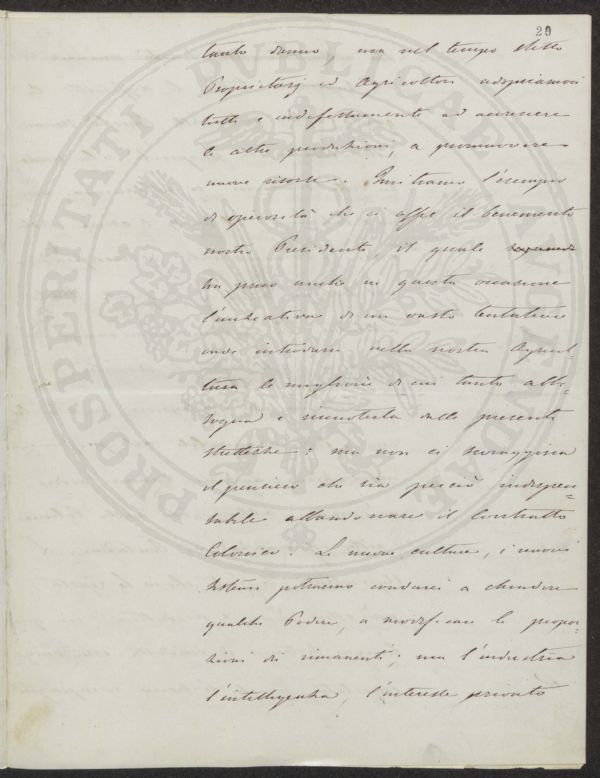 20
tanto danno, ma nel tempo stesso
Proprietarj ed Agricoltori adopriamoci
tutti e indefessamente ad accrescere
le altre produzioni, a promuovere
nuove risorse. Imitiamo l'esempio
di operosità che ci offre il benemerito
nostro Presidente il quale
ha preso anche in questa occasione
l'iniziativa di un vasto tentativo
onde introdurre nella nostra Agricol-
tura le migliorie di cui tanto abbi-
sogna e reso dalle presenti
strettezze: ma non ci
il pensiero che sia perciò indispen=
sabile abbandonare il Contratto
Colonico. Le nuove culture, i nuovi
sistemi potranno condurci a chiudere
qualche Podere, a modificare le propor-
zioni di rimanenti; ma l'industria
l'intelligenza, l'interesse privato
PROSPERITATI PUBLICAE AUGENDAE